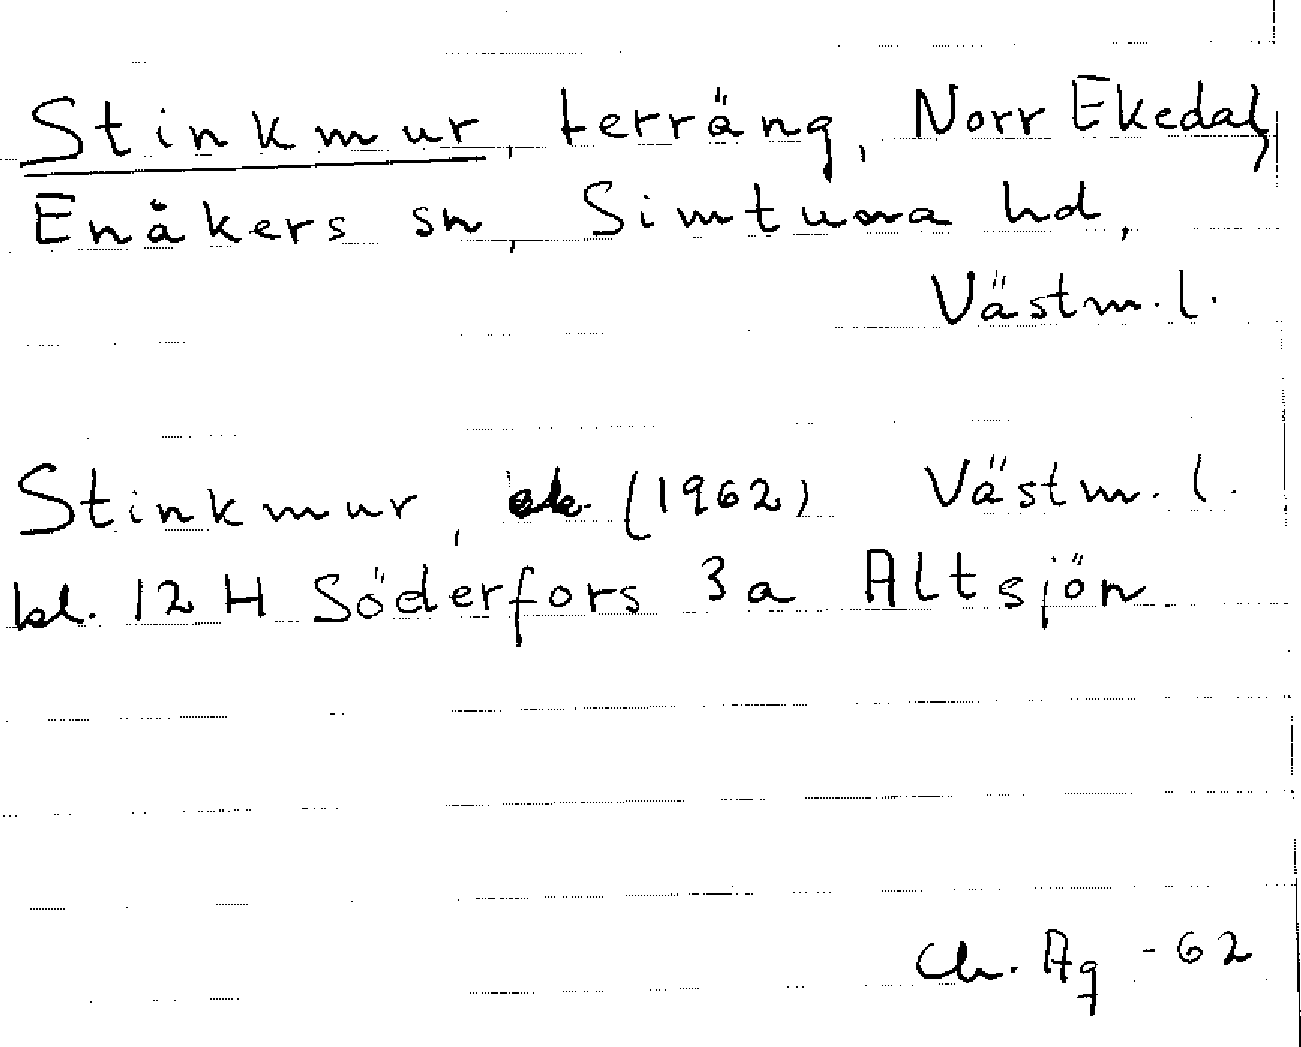 Stinkmur, terräng, Norr Ekedal,
Enåkers sn, Simtuna hd,
Västm. l.
Stinkmur, ek. (1962) Västm. l.
bl. 12 H Söderfors 3 a Altsjön
Ch. Ag -62